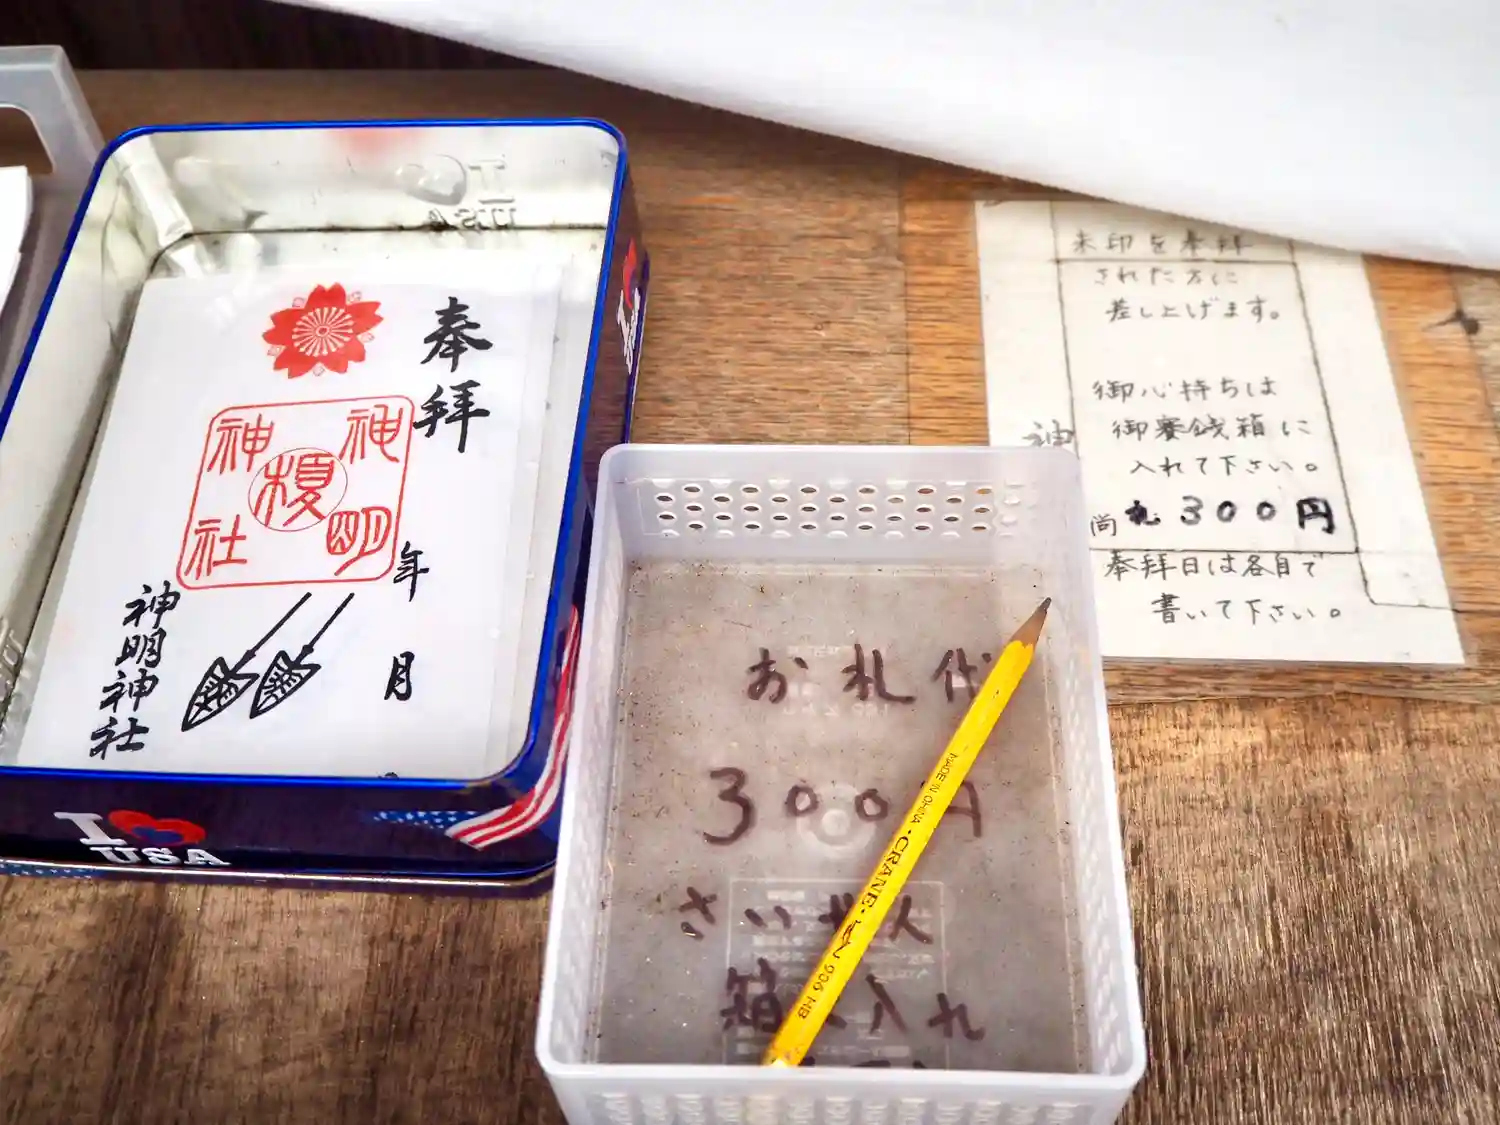 奉拝
神明
榎
神社
年
月
神明神社
I
USA
I
USA
お札代
300円
さいせん
箱に入れ
MADE IN CHINA・CRANE・
906 HB
朱印を奉拝
された方に
差し上げます。
御心持ちは
御賽銭箱に
入れて下さい。
神
尚
札 300円
奉拝日は各自で
書いて下さい。